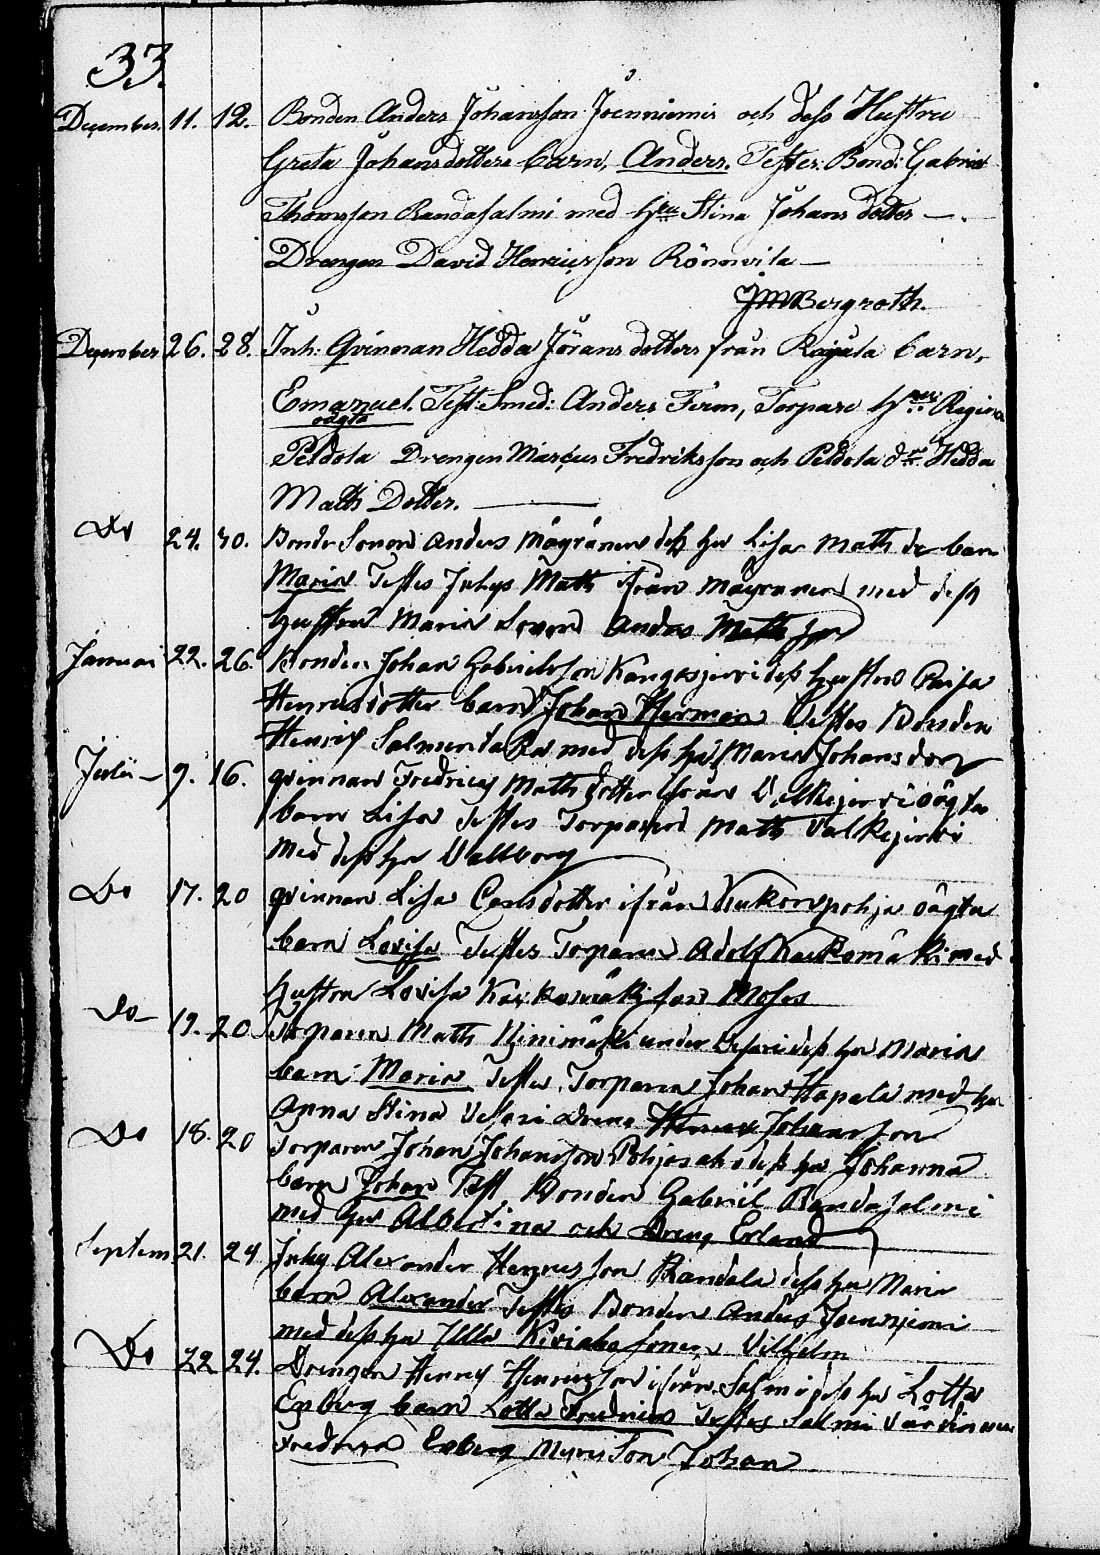 33.
December. 11. 12. Bonden Anders Johansson Joenniemis och dess Hustru
Greta Johansdotters barn, Anders. Testes: Bond: Gabriel
Thomsson Randasalmi med Hru Stina Johans dotter —
Drengen David Henricsson —
JM Bergroth.
December 26. 28. Inh: Qvinnan Hedda Jörans dotters från barn,
Emanuel. Test: Smed: Anders Ferm, Torpare Regina
oägta
Peldola Drengen Marcus Fredriksson och Peldola Hedda
Matts Dotter. —
Do 24. 30. Bonde Sonen Anders Mägränen dess hu Lisa Matts dr barn
Maria Testes Inhys Matts ifrån Mägränen med dess
hustru Maria Sonen Anders Mattsson
Januari 22. 26. Bonden Johan Gabrielsson Kangasjervi dess hustru Caisa
Henricsdotter barn Johan Herman Testes Bonden
Henric med dess hu Maria Johansdotr
Julii — 9. 16. qvinnan Fredrica Mathsdotter ifrån Valkejervi oägta
barn Lisa Testes Torparen Matts Valkejervi
med dess hu Vallborg
Do 17. 20 qvinnan Lisa Carlsdotter ifrån oägta
barn Lovisa Testes Torparen Adolf med
hustru Lovisa Moses
Do 19. 20 Torparen Matts Hinimäki under dess hu Maria
barn Maria Testes Torparen Johan Hapala med hu
Anna Stina Vesari Dreng Johansson
Do 18. 20 Torparen Johan Johansson dess hu Johanna
barn Johan Test Bonden Gabriel Randasalmi
med hu Albertina och Dreng Erland
Septem 21. 24 Inhy Alexander Henricsson Randala dess hu Maria
barn Alexander Testes Bonden Anders Joenniemi
med dess hu Ulla Vilhelm
Do 22 24. Drengen Henric Henricsson ifrån Salmi dess hu Lotta
Enberg barn Lotta Fredrica Testes Salmi
Fredrica Enberg Son Johan